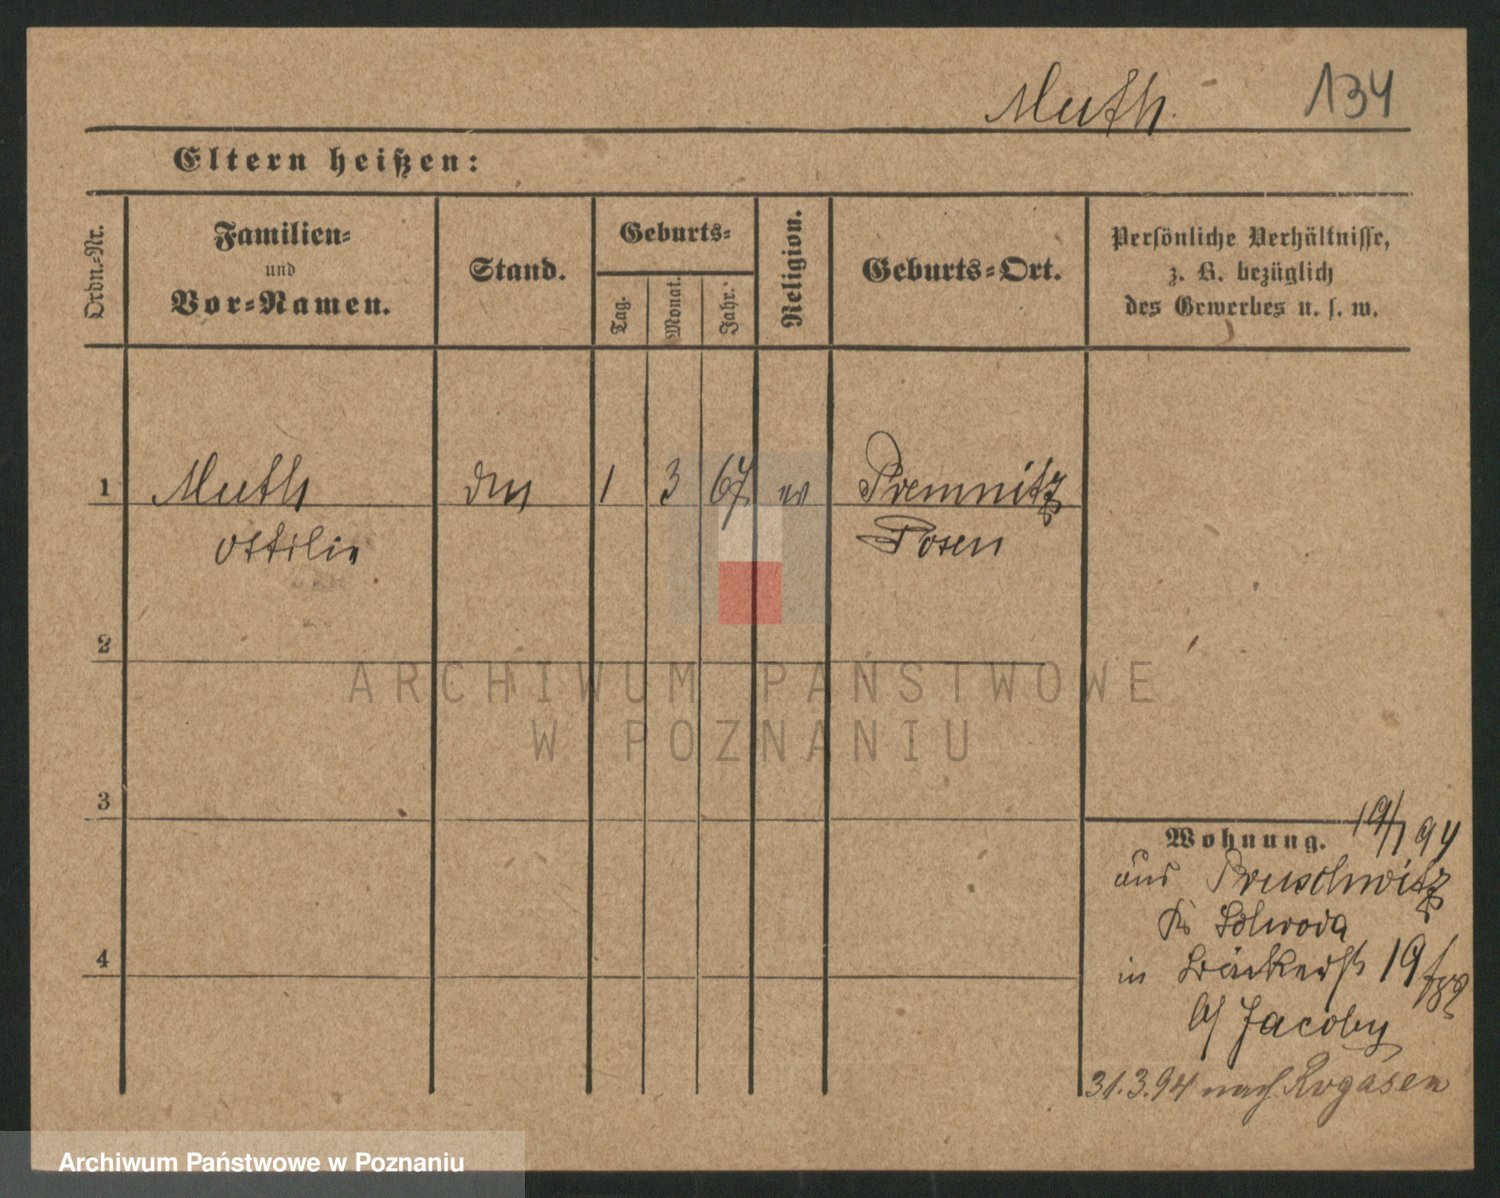 Muth 134
Eltern heißen:
Ordn.-Nr.
Familien-
und
Vor-Namen.
Stand.
Geburts-
Tag.
Monat.
Jahr.
Religion.
Geburts-Ort.
Persönliche Verhältnisse,
z. B. bezüglich
des Gewerbes u. s. w.
1 Muth 1 3 67 ev Premnitz
Ottilie Posen
2
3
4
19/1 94
Wohnung.
aus Pruschwitz
in Bäckerst 19
b/ Jacoby
31.3.94 nach Rogasen
ARCHIWUM PAŃSTWOWE
W POZNANIU
Archiwum Państwowe w Poznaniu